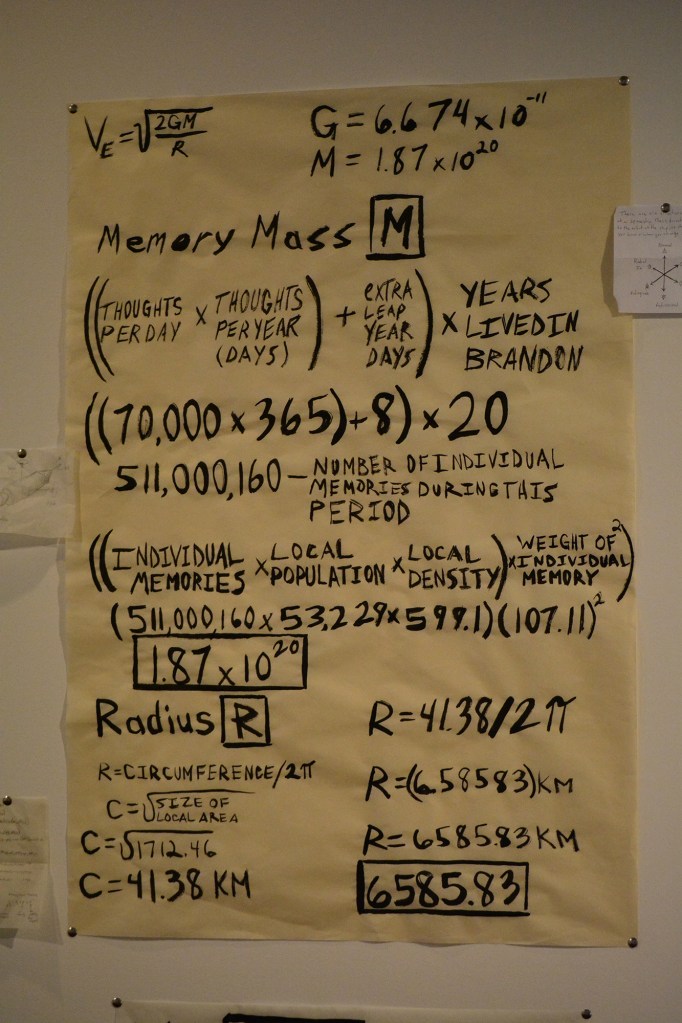 V_E = √(2GM/R)
G = 6.674 x 10^-11
M = 1.87 x 10^20
Memory Mass M
((THOUGHTS PER DAY x THOUGHTS PER YEAR (DAYS)) + EXTRA LEAP YEAR DAYS) x YEARS LIVED IN BRANDON
((70,000 x 365) + 8) x 20
511,000,160 – NUMBER OF INDIVIDUAL MEMORIES DURING THIS PERIOD
((INDIVIDUAL MEMORIES x LOCAL POPULATION x LOCAL DENSITY) x WEIGHT OF INDIVIDUAL MEMORY^2)
(511,000,160 x 53,229 x 599.1)(107.11)^2
1.87 x 10^20
Radius R
R = CIRCUMFERENCE/2π
C = √SIZE OF LOCAL AREA
C = √1712.46
C = 41.38 KM
R = 41.38/2π
R = (6.58583) KM
R = 6585.83 KM
6585.83